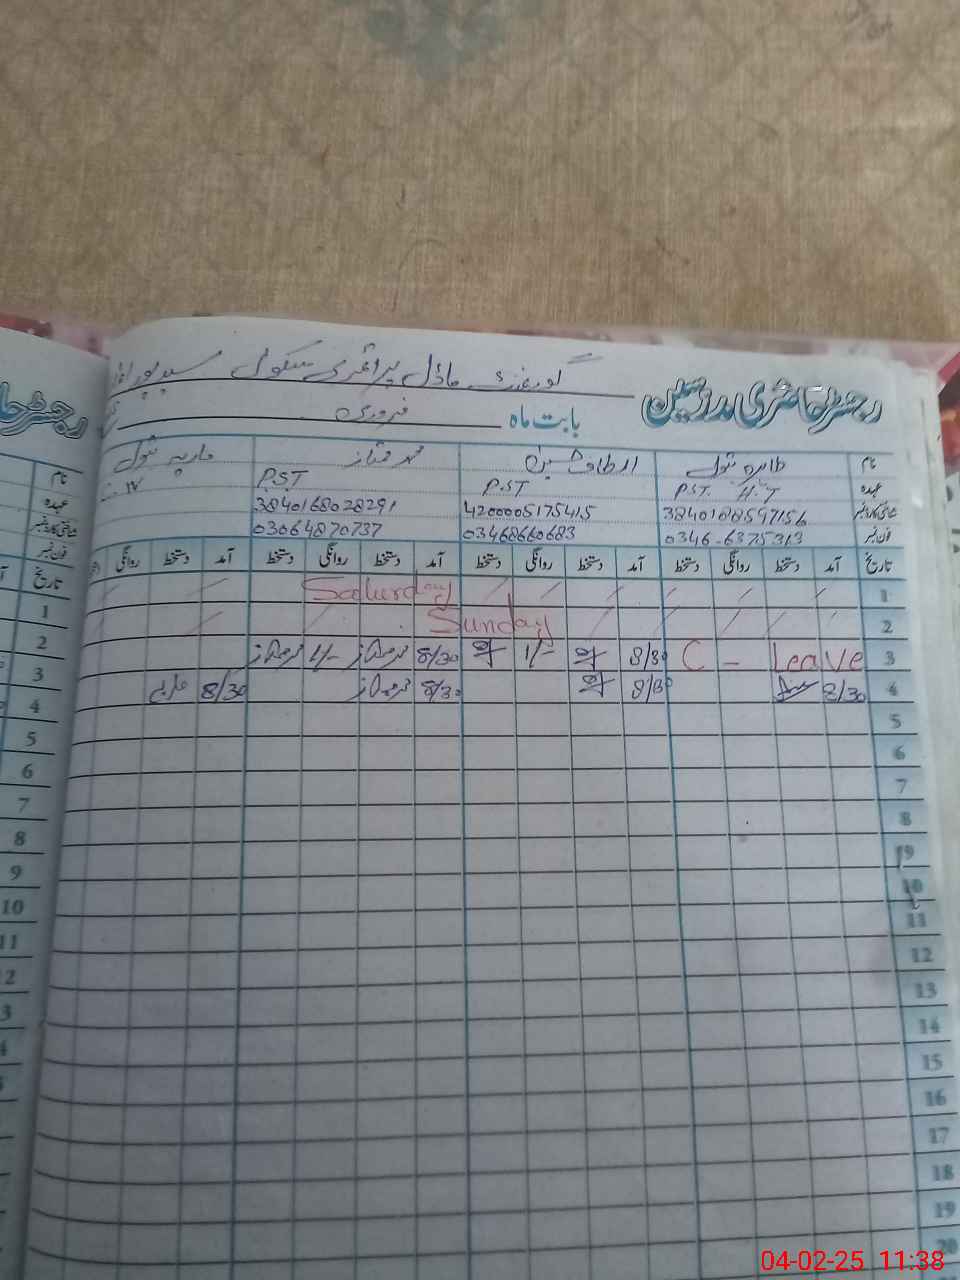 گورنمنٹ ماڈل پرائمری سکول سید پور
رجسٹر حاضری مدرسین
بابت ماہ فروری
نام طاہرہ بتول الطاف حسین محمد ممتاز ماریہ بتول
عہدہ PST. H.T P.ST P.ST
شناختی کارڈ نمبر 3840188597156 4200005175415 3840168028291
فون نمبر 0346-6375313 03468660683 03064870737
تاریخ آمد دستخط روانگی دستخط آمد دستخط روانگی دستخط آمد دستخط روانگی دستخط آمد دستخط روانگی
1 Saturday
2 Sunday
3 C - Leave 8/30 1/- 8/30 1/-
4 8/30 8/30 8/30 8/30
5
6
7
8
9
10
11
12
13
14
15
16
17
18
19
20
رجسٹر حا
نام
عہدہ
شناختی کارڈ نمبر
فون نمبر
تاریخ
1
2
3
4
5
6
7
8
9
10
11
12
3
4
04-02-25 11:38